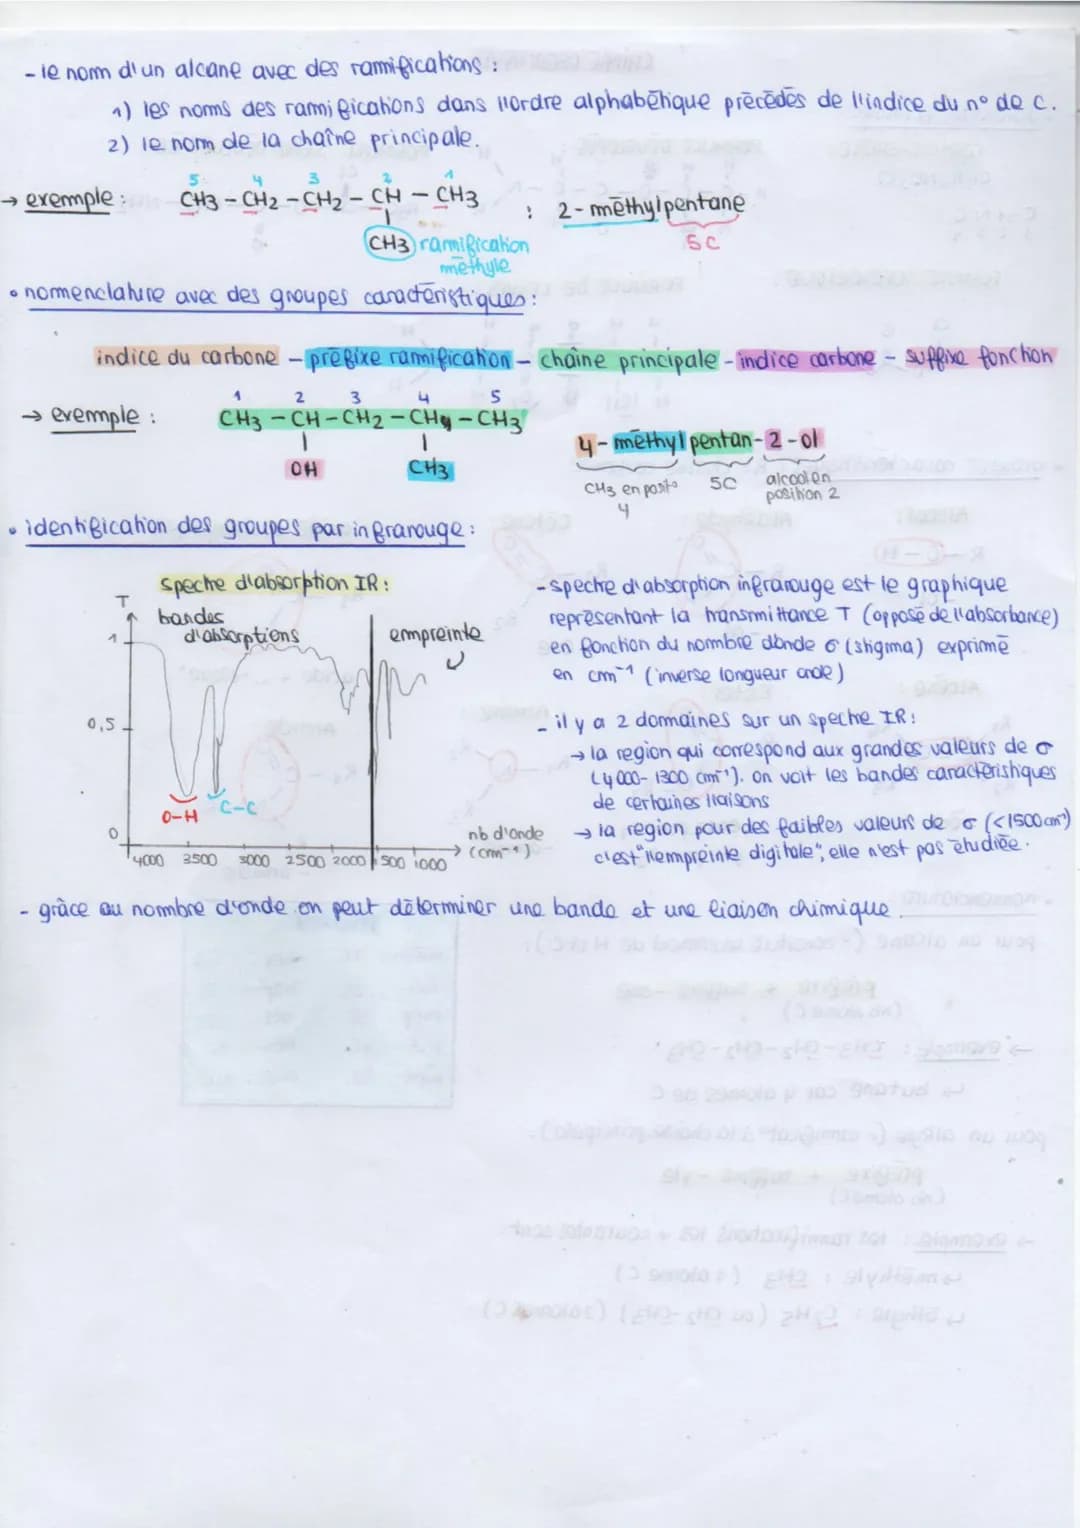 - le nom d'un alcane avec des ramifications :
1) les noms des ramifications dans l'ordre alphabétique précédés de l'indice du n° de C.
2) le nom de la chaîne principale.
5 4 3 2 1
→ exemple : CH3 - CH2 - CH2 - CH - CH3 : 2 - méthylpentane
CH3 ramification 5C
méthyle
• nomenclature avec des groupes caractéristiques :
indice du carbone - préfixe ramification - chaîne principale - indice carbone - suffixe fonction
1 2 3 4 5
→ exemple : CH3 - CH - CH2 - CH - CH3
4 - méthylpentan - 2 - ol
OH CH3
CH3 en posit° 4
5C
alcool en position 2
• identification des groupes par infrarouge :
spectre d'absorption IR :
T
bandes d'absorptions
empreinte
1
0,5
0
O-H
C-C
4000 3500 3000 2500 2000 1500 1000
nb d'onde (cm⁻¹)
- spectre d'absorption infrarouge est le graphique
représentant la transmittance T (opposé de l'absorbance)
en fonction du nombre d'onde σ (stigma) exprimé
en cm⁻¹ (inverse longueur onde)
- il y a 2 domaines sur un spectre IR :
→ la region qui correspond aux grandes valeurs de σ
(4000 - 1300 cm⁻¹). on voit les bandes caractéristiques
de certaines liaisons
→ la region pour des faibles valeurs de σ (<1500 cm⁻¹)
c'est "l'empreinte digitale", elle n'est pas étudiée.
- grâce au nombre d'onde on peut déterminer une bande et une liaison chimique.